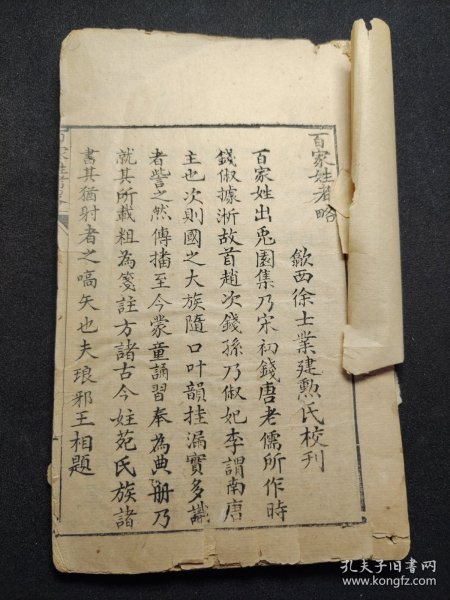 百家姓考略
歙西徐士業建勲氏校刊
百家姓出兎園集乃宋初錢唐老儒所作時
錢俶據浙故首趙次錢孫乃俶妃李謂南唐
主也次則國之大族隨口叶韻挂漏實多識
者訾之然傳播至今蒙童誦習奉為典册乃
就其所載粗為箋註方諸古今姓苑氏族諸
書其猶射者之嗃矢也夫琅邪王相題
孔夫子旧书网
www.kongfz.com